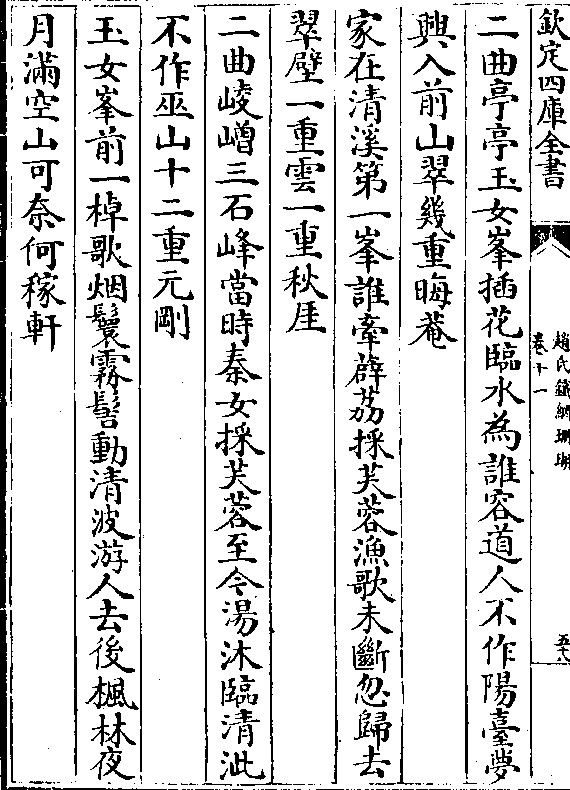 欽定四庫全書
趙氏鐵網珊瑚
卷十一
五十八
二曲亭亭玉女峯插花臨水為誰容道人不作陽臺夢
興入前山翠幾重晦菴
家在清溪第一峯誰牽薜荔採芙蓉漁歌未斷忽歸去
翠壁一重雲一重秋厓
二曲崚嶒三石峰當時秦女採芙蓉至今湯沐臨清泚
不作巫山十二重元剛
玉女峯前一棹歌烟鬟霧髻動清波游人去後楓林夜
月滿空山可奈何稼軒